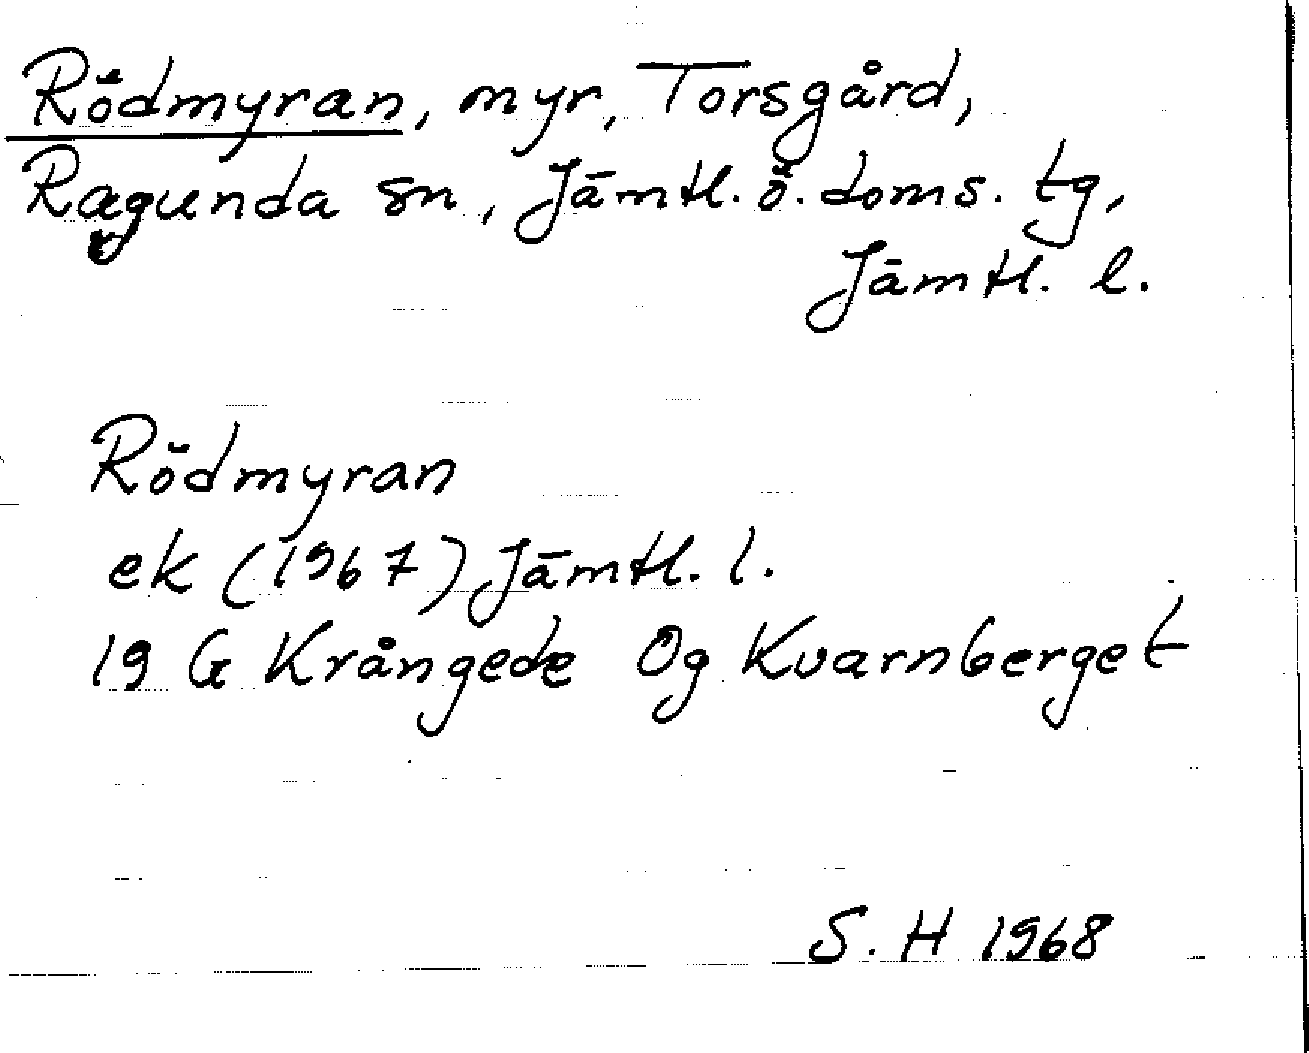 Rödmyran, myr, Torsgård,
Ragunda sn, Jämtl. ö. doms. tg,
Jämtl. l.
Rödmyran
ek (1967) Jämtl. l.
19 G Krångede Og Kvarnberget
S. H 1968